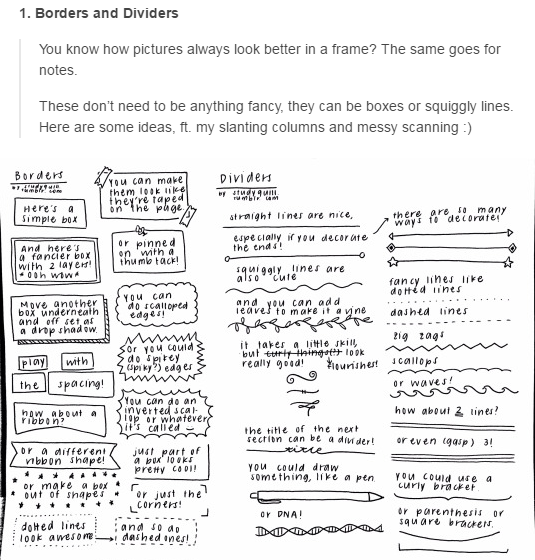 1. Borders and Dividers
You know how pictures always look better in a frame? The same goes for
notes.
These don't need to be anything fancy, they can be boxes or squiggly lines.
Here are some ideas, ft. my slanting columns and messy scanning :)
Borders
by studyquill.
tumblr.com
Here's a
simple box
And here's
a fancier box
with 2 layers!
*ooh wow*
Move another
box underneath
and off set as
a drop shadow
play with
the spacing!
how about a
ribbon?
or a different
ribbon shape!
or make a box
out of shapes
dotted lines
look awesome
you can make
them look like
they're taped
on the page.
or pinned
on with a
thumbtack!
you can
do scalloped
edges!
Or you could
do spikey
(spiky?) edges
You can do an
inverted scal-
lop or whatever
it's called
just part of
a box looks
pretty cool!
or just the
corners!
and so do
dashed ones!
Dividers
by studyquill.
tumblr.com
straight lines are nice,
especially if you decorate
the ends!
squiggly lines are
also cute
and you can add
leaves to make it a vine
it takes a little skill,
but curly things(?) look
really good! flourishes!
the title of the next
section can be a divider!
title
you could draw
something, like a pen
or DNA!
there are so many
ways to decorate!
fancy lines like
dotted lines
dashed lines
zig zags
scallops
or waves!
how about 2 lines?
or even (gasp) 3!
you could use a
curly bracket
or parenthesis or
square brackets.